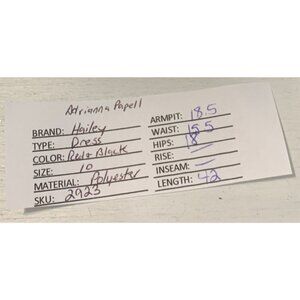 Adrianna Papell
BRAND: Hailey
TYPE: Dress
COLOR: Red & Black
SIZE: 10
MATERIAL: Polyester
SKU: 2923
ARMPIT: 18.5
WAIST: 15.5
HIPS: 18
RISE: —
INSEAM: —
LENGTH: 42